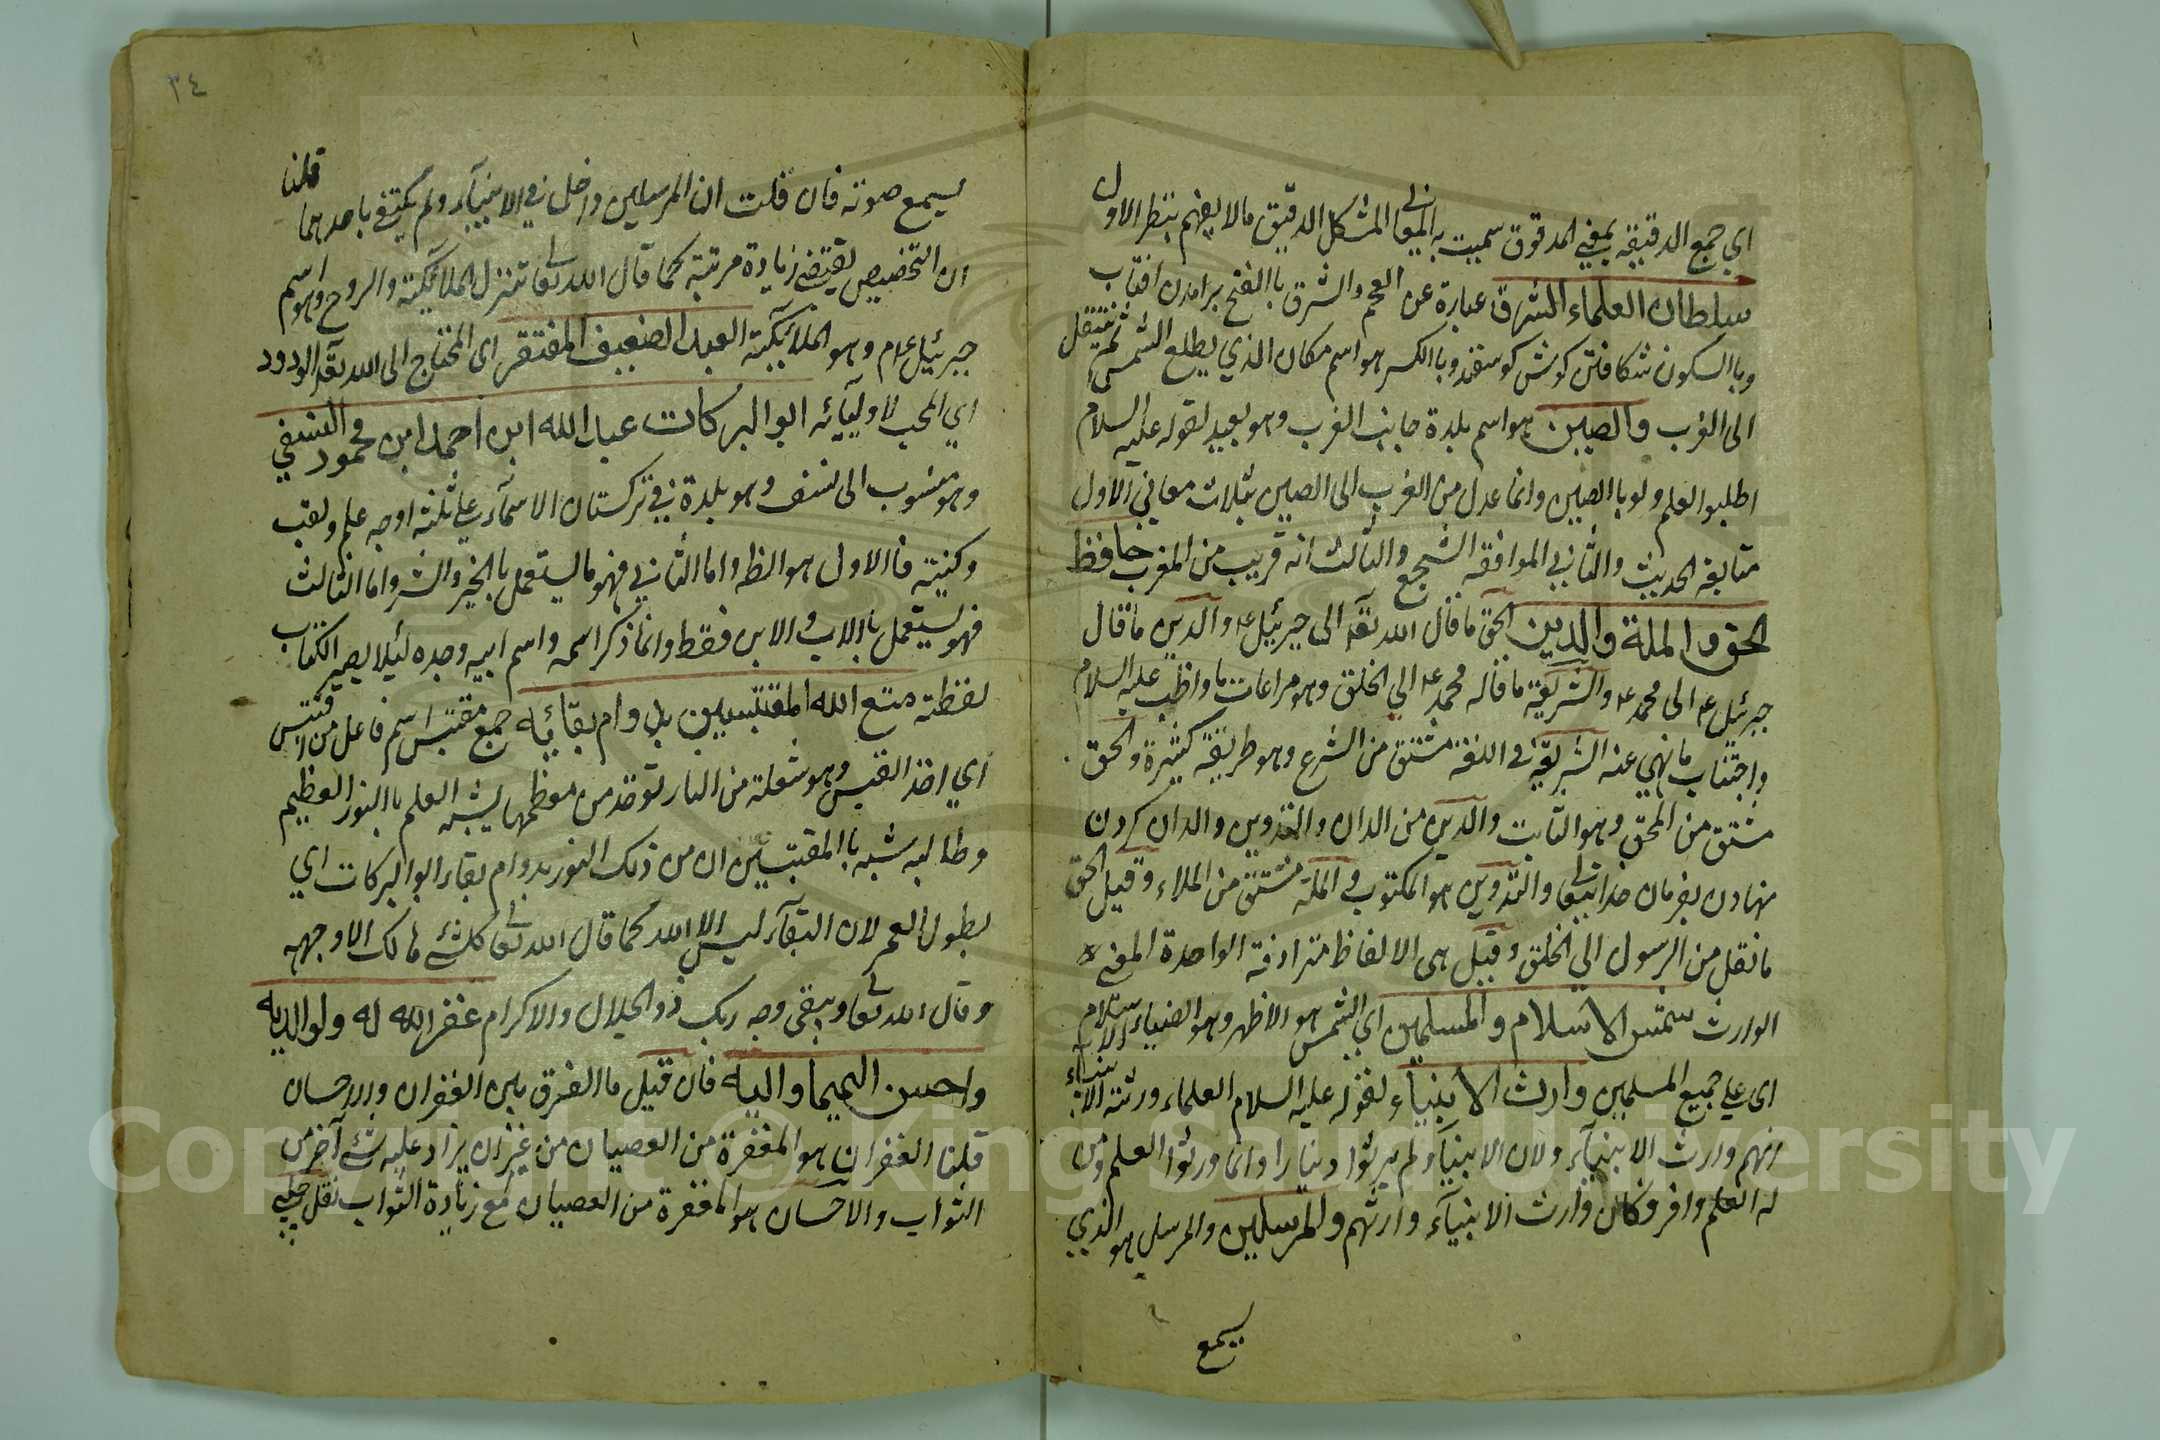 اي جمع الدقيقة بمعني المدقوق سميت به المعاني المشكل الدقيق مالا يفهم بنظر الاول
سلطان العلماء الشرق عبارة عن العجم والشرق باالفتح برامدن افتاب
وباالسكون شكافتن كوش كوسفند وباالكسر هو اسم مكان الذي يطلع الشمس ثم تنتقل
الى الغرب والصين هو اسم بلدة جانب الغرب وهو بعيد لقوله عليه السلام
اطلبوا العلم ولو باالصين وانما عدل من الغرب الى الصين بثلاث معاني الاول
متابعة الحديث والثاني الموافقة الشجع والثالث انه قريب من المغرب حافظ
الحق والملة والدين الحق ما قال الله تعه الى جبرئيل ع والدين ما قال
جبرئيل ع الى محمد ع والشريعة ما قاله محمد ع الي الخلق وهو مراعات ما واظب عليه السلام
واجتناب ما نهي عنه الشريعة في اللغة مشتق من الشرع وهو طريقة كثيرة والحق
مشتق من المحق وهو الثابت والدين من الدان والتدوين والدان كردن
نهادن بفرمان خدا تعالى والتدوين هو المكتوب في الملة مشتق من الملاء وقيل الحق
ما نقل من الرسول الي الخلق وقيل هي الالفاظ مترادفة الواحدة المعني
الوارث شمس الاسلام والمسلمين اي الشمس هو الاظهر وهو الضياء الاسلام
اى علي جميع المسلمين وارث الانبياء لقوله عليه السلام العلماء ورثة الانبياء
انهم وارث الانبيآء ولان الانبيآء لم يرثوا دينارا وانما ورثوا العلم ومن
له العلم وافر وكان وارث الانبيآء وارثهم والمرسلين والمرسل هو الذي
يسمع
٣٤
يسمع صوته فان قلت ان المرسلين داخل في الانبيآء ولم يكتفي باحدهما قلنا
ان التخصيص يقتضي زيادة مرتبة كما قال الله تعالى تنزل الملائكة والروح وهو اسم
جبرئيل عم وهو الملائكة العبد الضعيف المفتقر اى المحتاج الى الله تعه الودود
اي المحب لاوليآئه ابو البركات عبد الله ابن احمد ابن محمود النسفي
وهو منسوب الى نسف وهو بلدة في تركستان الاسمآء علي ثلثة اوجه علم ولقب
وكنية فاالاول هو الظ واما الثاني فهو ما يستعمل باالخير والشر واما الثالث
فهو يستعمل باالاب والابن فقط وانما ذكر اسمه واسم ابيه وجده لئلا يصير الكتاب
لفظته متع الله المقتبسين بدوام بقائه جمع مقتبس اسم فاعل من اقتبس
اي اخذ القبس وهو شعلة من النار توقد من معظمها يشبه العلم باالنور العظيم
وطالبه شبه باالمقتبسين ان من ذلك النور بدوام بقاء ابو البركات اي
بطول العمر لان البقآء ليس الا الله كما قال الله تعالى كل شئ هالك الا وجهه
وقال الله تعالى ويبقى وجه ربك ذو الجلال والاكرام غفر الله له ولوالديه
واحسن اليهما واليه فان قيل ما الفرق بين الغفران والاحسان
قلنا الغفران هو المغفرة من العصيان من غير ان يزاد عليه شئ آخر من
الثواب والاحسان هو المغفرة من العصيان مع زيادة الثواب نقل
Copyright © King Saud University